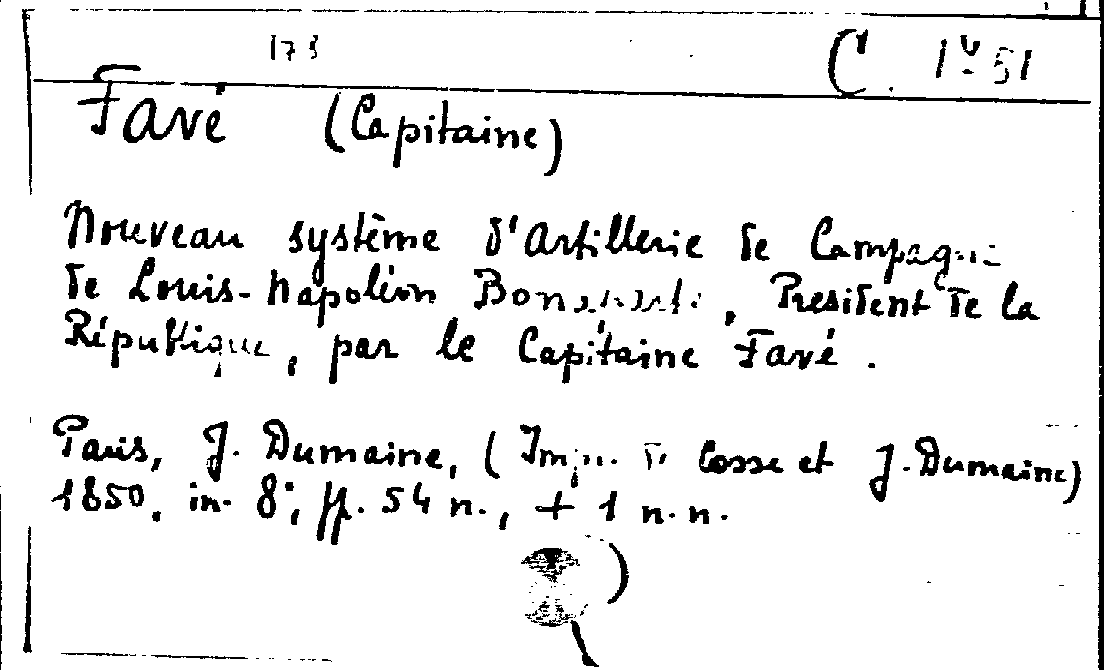 173
C. 1º 51
Favé (Capitaine)
Nouveau système d'Artillerie de Campagne
de Louis-Napoléon Bonaparte, President de la
République, par le Capitaine Favé.
Paris, J. Dumaine, (Impr. de Cosse et J. Dumaine)
1850, in-8°, pp. 54 n., + 1 n.n.